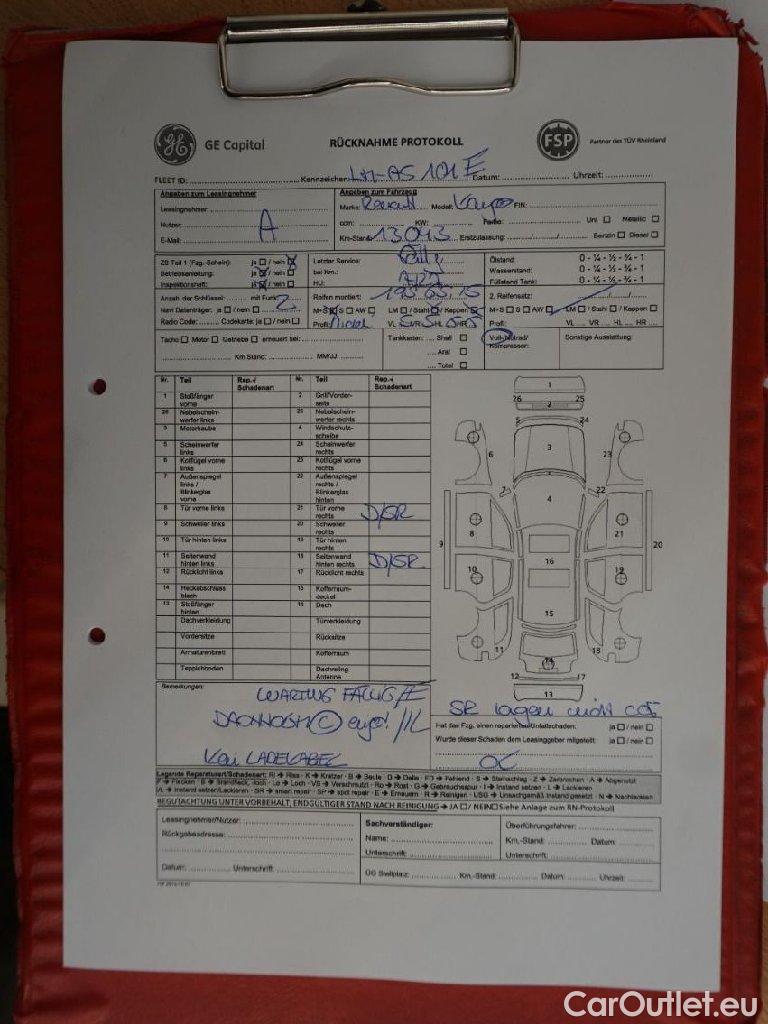 GE Capital
RÜCKNAHME PROTOKOLL
FSP
Partner des TÜV Rheinland
FLEET ID: Kennzeichen: Datum: Uhrzeit:
Angaben zum Leasingnehmer
Angaben zum Fahrzeug
Leasingnehmer
Marke: Renault Modell: FIN:
Nutzer: A
ccm: KW: Farbe: Uni Metallic
E-Mail:
Km-Stand: 13043 Erstzulassung: Benzin Diesel
ZB Teil 1 (Fzg.-Schein): ja / nein
Letzter Service:
Ölstand 0 - ¼ - ½ - ¾ - 1
Betriebsanleitung: ja / nein
bei Km.:
Wasserstand: 0 - ¼ - ½ - ¾ - 1
Inspektionsheft: ja / nein
HU:
Füllstand Tank: 0 - ¼ - ½ - ¾ - 1
Anzahl der Schlüssel: mit Funk: 2
Reifen montiert: 195.65.15
2. Reifensatz:
Navi Datenträger: ja / nein
M+S S AW LM / Stahl / Kappen
M+S S AW LM / Stahl / Kappen
Radio Code: Codekarte: ja / nein
Profil: VL 5 VR 5 HL 5 HR 5
Profil: VL VR HL HR
Tacho Motor Getriebe erneuert bei:
Tankkarten: Shell
Voll-/Notrad/
Kompressor:
Sonstige Ausstattung:
Km Stand: MM/JJ
Aral
Total
Nr. Teil Rep.-/ Schadenart Nr. Teil Rep.-/ Schadenart
1 Stoßfänger vorne 2 Grill/Vorderseite
26 Nebelscheinwerfer links 25 Nebelscheinwerfer rechts
3 Motorhaube 4 Windschutzscheibe
5 Scheinwerfer links 24 Scheinwerfer rechts
6 Kotflügel vorne links 23 Kotflügel vorne rechts
7 Außenspiegel links / Blinkerglas vorne 22 Außenspiegel rechts / Blinkerglas hinten
8 Tür vorne links 21 Tür vorne rechts D/SR
9 Schweller links 20 Schweller rechts
10 Tür hinten links 19 Tür hinten rechts
11 Seitenwand hinten links 18 Seitenwand hinten rechts D/SR
12 Rücklicht links 17 Rücklicht rechts
14 Heckabschlussblech 15 Kofferraumdeckel
13 Stoßfänger hinten 16 Dach
Dachverkleidung Türverkleidung
Vordersitze Rücksitze
Armaturenbrett Kofferraum
Teppichboden Dachreling Antenne
1
26 2 25
5 24
6 3 23
7 22
4
8 21
9 20
16
10 19
15
11 18
14
12 17
13
Bemerkungen:
WARTUNG FÄLLIG/E
Kein LADEKABEL
SR lagen nicht
Hat das Fzg. einen reparierten Unfallschaden: ja / nein
Wurde dieser Schaden dem Leasinggeber mitgeteilt: ja / nein
BEGUTACHTUNG UNTER VORBEHALT, ENDGÜLTIGER STAND NACH REINIGUNG → JA / NEIN Siehe Anlage zum RN-Protokoll
Leasingnehmer/Nutzer:
Sachverständiger:
Überführungsfahrer:
Rückgabeadresse:
Name:
Km.-Stand: Datum:
Unterschrift:
Unterschrift:
Datum: Unterschrift:
Km.-Stand: Datum: Uhrzeit:
CarOutlet.eu